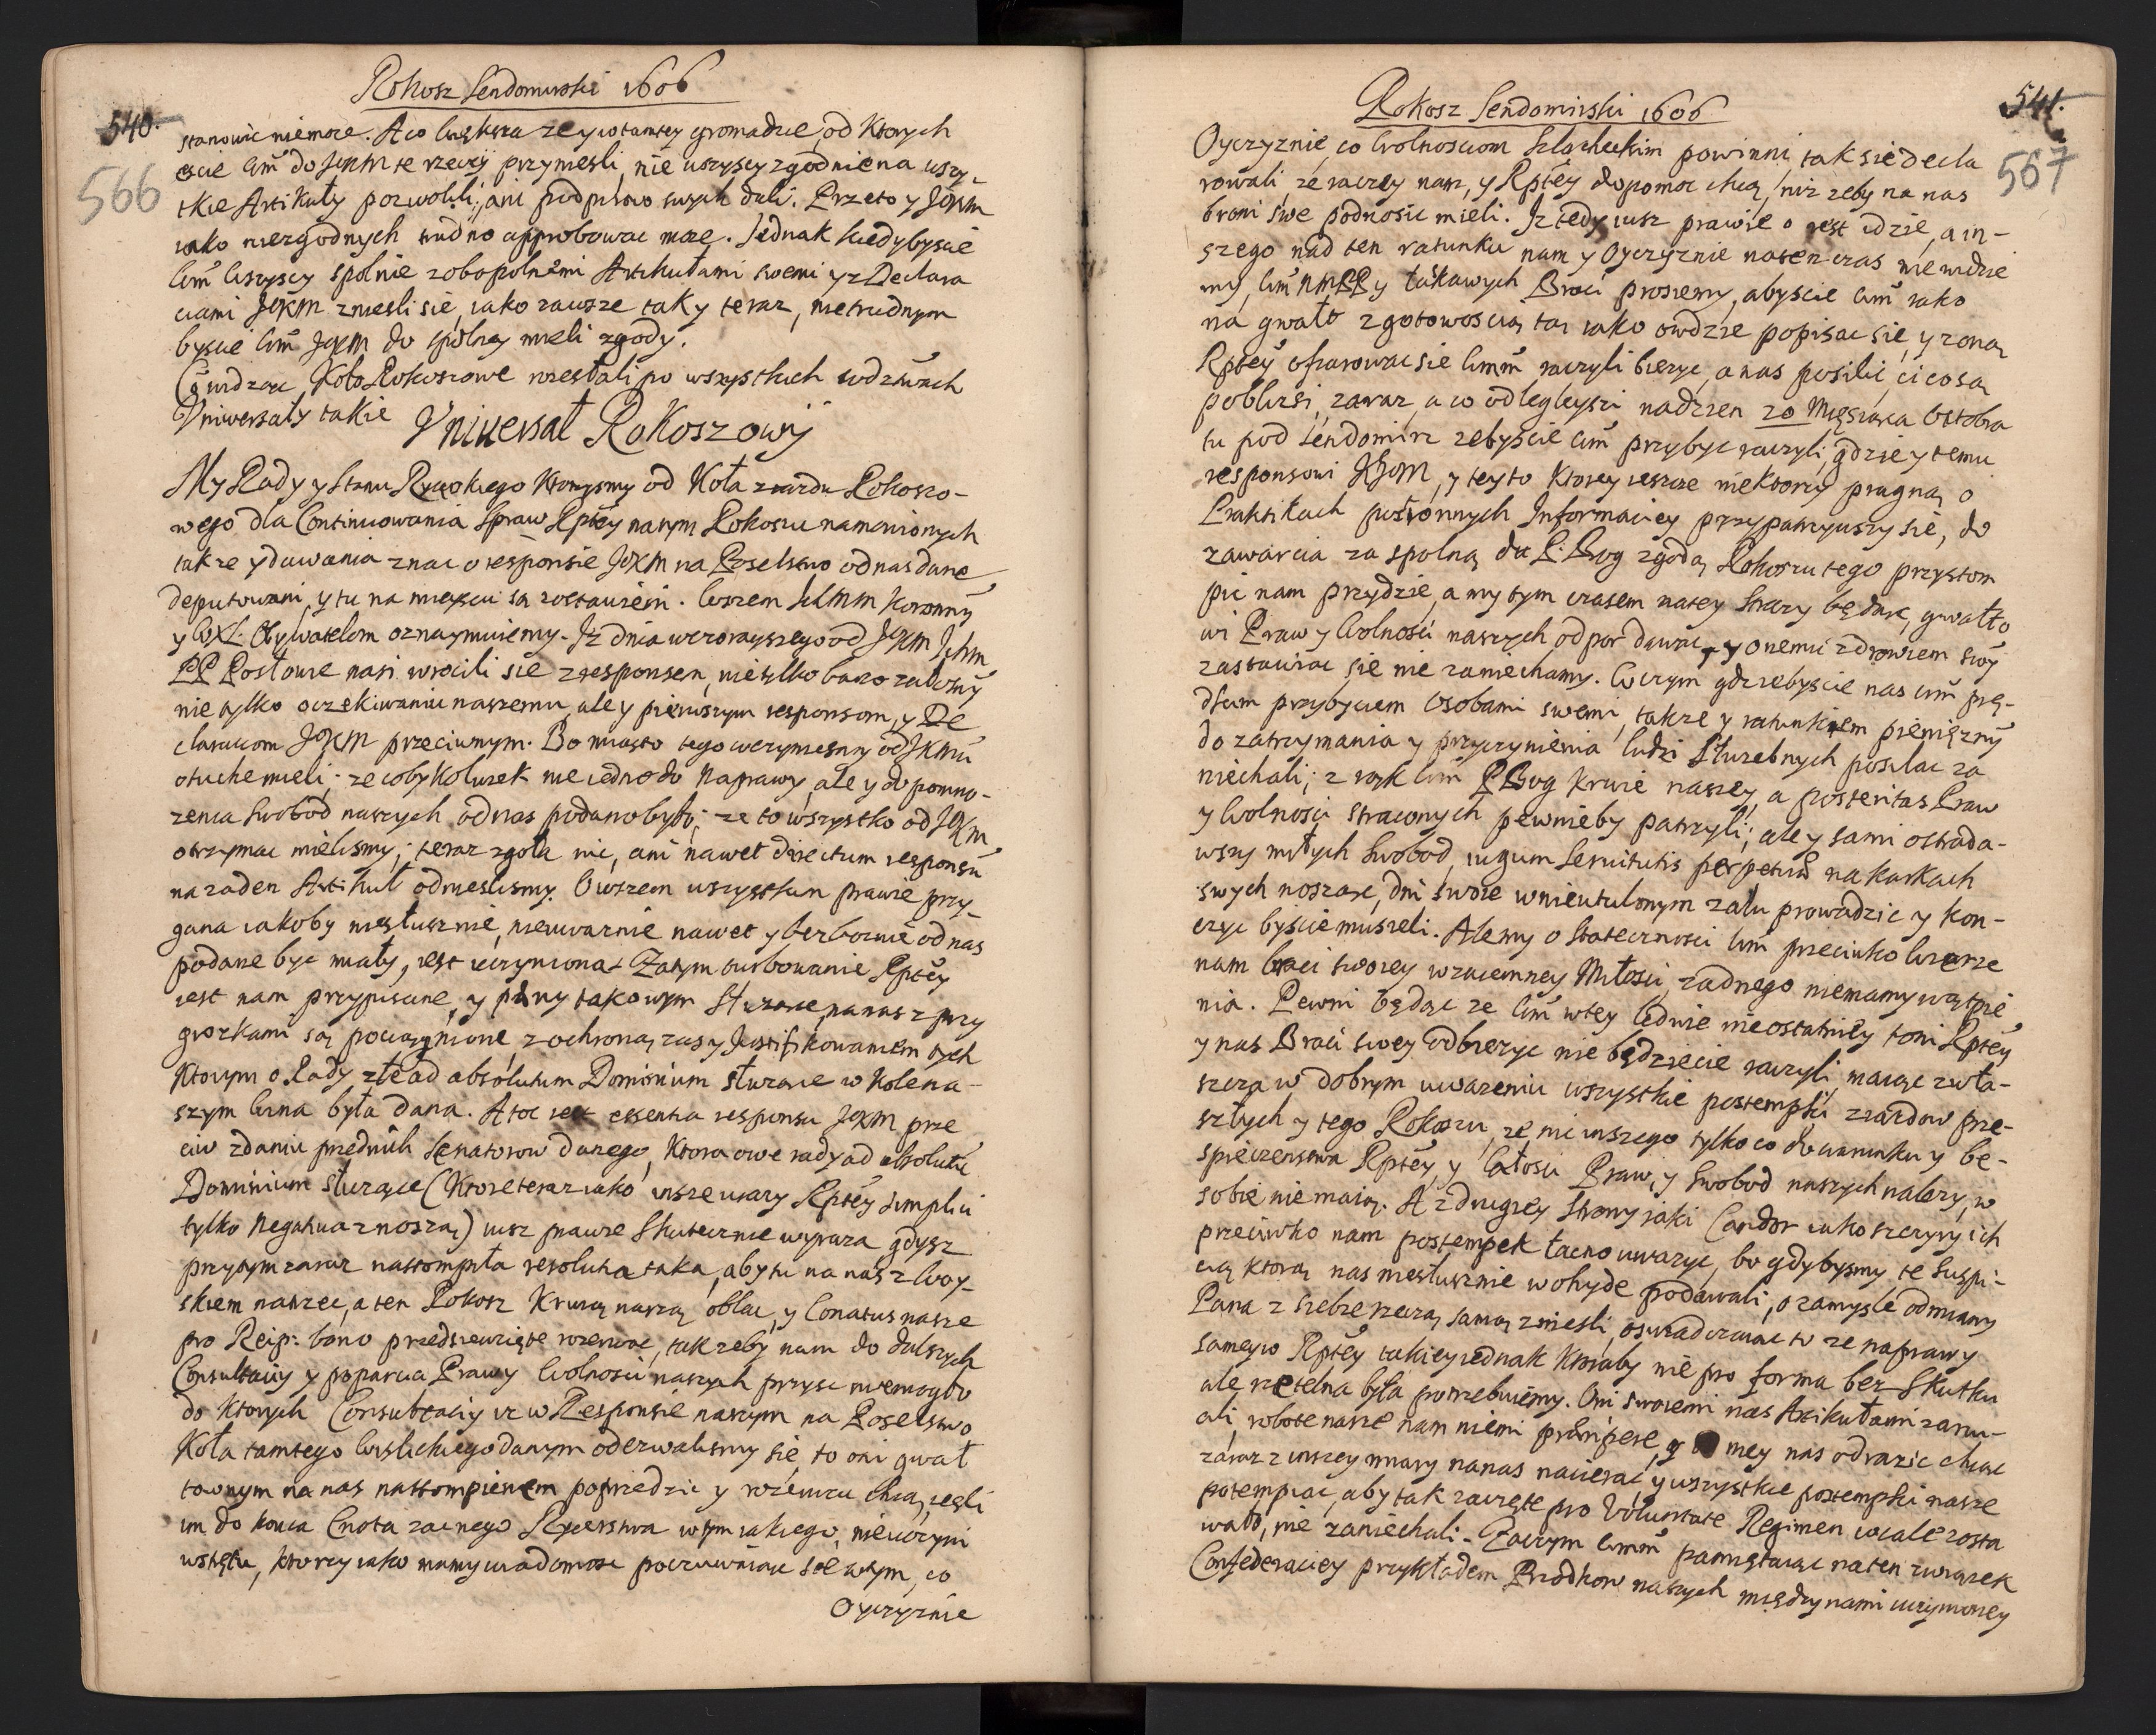 Rokosz Sendomirski 1606
540.
566
stanowic niemoze. A co większa ze y w tamtey gromadzie, od ktorych
escie Wm do JKM te rzeczy przyniesli, nie wszyscy zgodnie na wszy-
tkie Artikuły pozwolili, ani podpisow swych dali. Przeto y JKM
iako niezgodnych trudno approbowac moze. Jednak kiedybyscie
Wm wszyscy spolnie z obopolnemi Artikułami swemi y z Declara
ciami JKM zniesli się, iako zawsze tak y teraz, nietrudnym
byscie Wm JKM do spolney mieli zgody.
Co widząc Koło Rokoszowe rozesłali po wszystkich wodztwach
Vniwersały takie
Vniwersał Rokoszowy
My Rady y Stanu Rycerskiego ktorzysmy od Koła ziazdu Rokoszo-
wego dla Continuowania Spraw Rptey na tym Rokoszu namienionych
także y dawania znac o responsie JKM na Poselstwo od nas dane
deputowani, y tu na mieyscu są zostawieni. Wszem Ichmm Koronny
y WXL Obywatelom oznaymuiemy. Iż dnia wczorayszego od JKM Ichm
PP Posłowie nasi wrocili sie z responsem, nie tylko barzo załosny
nie tylko oczekiwaniu naszemu, ale y pierwszym responsom, y De
claraciom JKM przeciwnym. Bo miasto tego wczymesmy od JKMci
otuche mieli, ze cobykolwiek nie iedno do naprawy, ale y do pomno-
zenia swobod naszych od nas podano było, ze to wszystko od JKM
otrzymac mielismy; teraz zgoła nic, ani nawet directum responsu
na zaden Artikuł odnieslismy. Owszem wszystkim prawie przy-
gana iakoby niesłusznie, nieuwaznie nawet y bezboznie od nas
podane byc miały, iest uczyniona. Zatym turbowanie Rptey
iest nam przypisane, y pany takowym słuzące, na nas z przy
grozkami są pociągnione, z ochroną zas y Justifikowaniem tych
ktorym o Rady złe ad absolutum Dominium słuzące w Kole na-
szym wina była dana. A toc iest essentia responsu JKM prze
ciw zdaniu przednich Senatorow danego, ktora owe rady ad absolutu
Dominium słuzące (ktore teraz iako insze urazy Rptey simplici
tylko negatiua znoszą) iusz prawie skutecznie wyraza gdysz
przytym zaraz nastompiła resolutia taka, aby tu na nas z Woy-
skiem natrzec, a ten Rokosz krwią naszą oblac, y Conatus nasze
pro Reip: bono przedsiewzięte rozerwac, tak zeby nam do dalszych
Consultaciy y poparcia Prawy Wolnosci naszych przysc niemogło
do ktorych Consultaciy iz w Responsie naszym na Poselstwo
Koła tamtego Wislickiego danym oderwalismy się, to oni gwał
townym na nas nastompieniem poprzedzic y rozerwac chcą, iesli
im do konca Cnota zacnego Rycerstwa w tym iakiego nieuczyni
wstrętu, ktorzy iako mamy wiadomosc poczuwaiąc się w tym, co
Oyczyznie
Rokosz Sendomirski 1606
541.
567
Oyczyznie, co Wolnosciom Szlacheckim powinni, tak sie decla
rowali, ze raczey nam, y Rptey dopomoc chcą, niz zeby na nas
broni swe podnosic mieli. Iz tedy iusz prawie o rest idzie, a in-
szego nad ten ratunku nam y Oyczyznie na ten czas nie widzie
my, Wm NMPP y łaskawych Braci prosiemy, abyscie Wm iako
na gwałt z gotowoscią tą iako owdzie popisac się, y z oną
Rptey ofiarowac sie Wmm raczyli biezyc, a nas posilic, ci co są
poblizsi, zaraz, a co odlegleyszi na dzien 20 Miesiąca Octobra
tu pod Sendomirz zebyscie Wm przybyc raczyli, gdzie y temu
responsowi JKM, y tey to ktorey ieszcze niektorzy pragną o
Praktikach postronnych Informaciey przypatrzywszy się, do
zawarcia za spolną da P. Bog zgodą Rokoszu tego przystom
pic nam przydzie, a my tym czasem na tey strazy będąc, gwałto
wi Praw y Wolnosci naszych odpor dawac, y onemu zdrowiem swy
zastawiac się nie zaniechamy. W czym gdzebyscie nas Wm prę-
dkim przybyciem Osobami swemi, takze y ratunkiem pienięzny
do zatrzymania y przyczynienia ludzi Słuzebnych posilac za
niechali; z rąk Wm P Bog krwie naszey, a posteritas Praw
y Wolnosci straconych pewnieby patrzyli; ale y sami ostrada-
wszy miłych swobod, iugum seruitutis perpetuæ na karkach
swych noszące, dni swoie w nieutulonym zalu prowadzic y kon-
czyc byscie musieli. Ale my o statecznosci Wm przeciwko wierze
nam braci swoiey wzaiemney Miłosci, zadnego niemamy wątpie
nia. Pewni będąc ze Wm w tey ledwie nieostatniey toni Rptey
y nas Braci swey odbiezyc nie będziecie raczyli, maiąc zwła-
szcza w dobrym uwazeniu wszystkie postempki ziazdow prze-
szłych y tego Rokoszu, ze nic inszego tylko co do warunku y be-
spieczenstwa Rptey, y Całosci Praw, y Swobod naszych nalezy, w
sobie nie maią. A z drugiey strony iaki Candor iako szczyry ich
przeciwko nam postempek łacno uwazyc, bo gdybysmy te Suspi-
cią ktorą nas niesłusznie w ohyde podawali, o zamysle odmiany
Pana z siebie rzeczą samą zniesli, oswiadczaiąc to ze naprawy
samey to Rptey takiey iednak ktoraby nie pro forma bez skutku
ale rzetelna była potrzebuiemy. Oni swoiemi nas Artikułami zarzu-
cali, robote nasze nam niemi prawipese, y niey nas odrazic chcąc
zaraz z inszey miary na nas nacierac, y wszystkie postempki nasze
potempiac, aby tak zaczęte pro Voluntate Regimen wcale zosta
wało, nie zaniechali. Zaczym Wmm pamiętaiąc na ten związek
Confederaciey przykładem Przodkow naszych między nami uczynioney